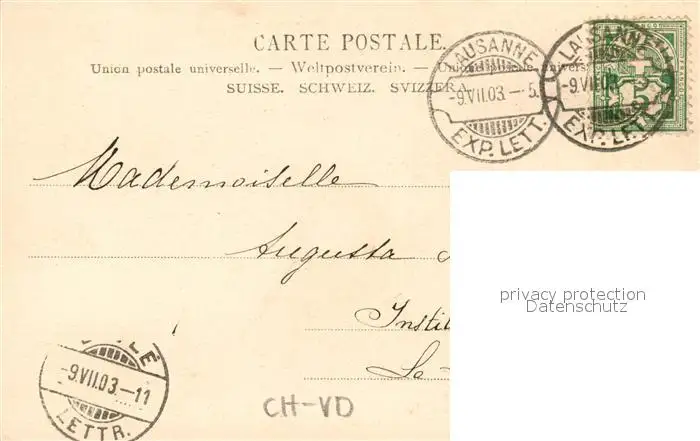 CARTE POSTALE.
Union postale universelle. — Weltpostverein. — Unione postale universale
SUISSE. SCHWEIZ. SVIZZERA.
LAUSANNE
-9.VII.03.— 5.
EXP. LETT.
LAUSANNE
-9.VII.03
EXP. LETT.
Mademoiselle
Augusta
Instit
privacy protection
Datenschutz
-9.VII.03.—11
LETTR.
CH-VD